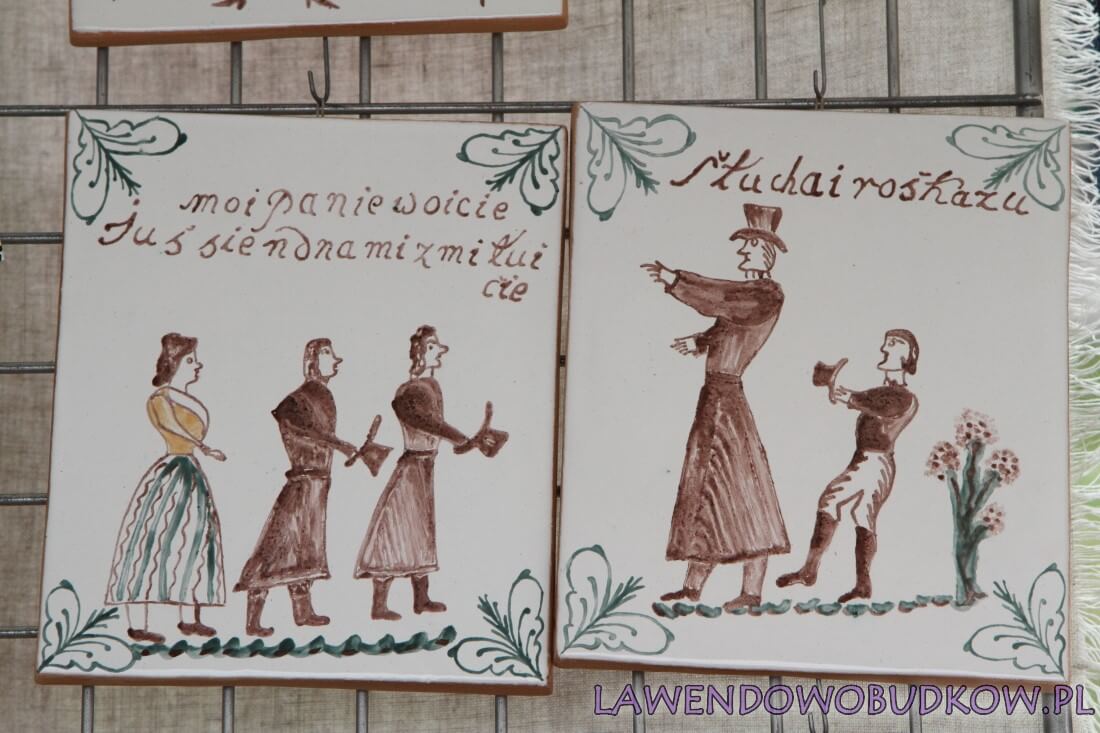 moi panie woicie
Juś sie nd nami zmiłui
cie
Słuchai rośkazu
LAWENDOWOBUDKOW.PL